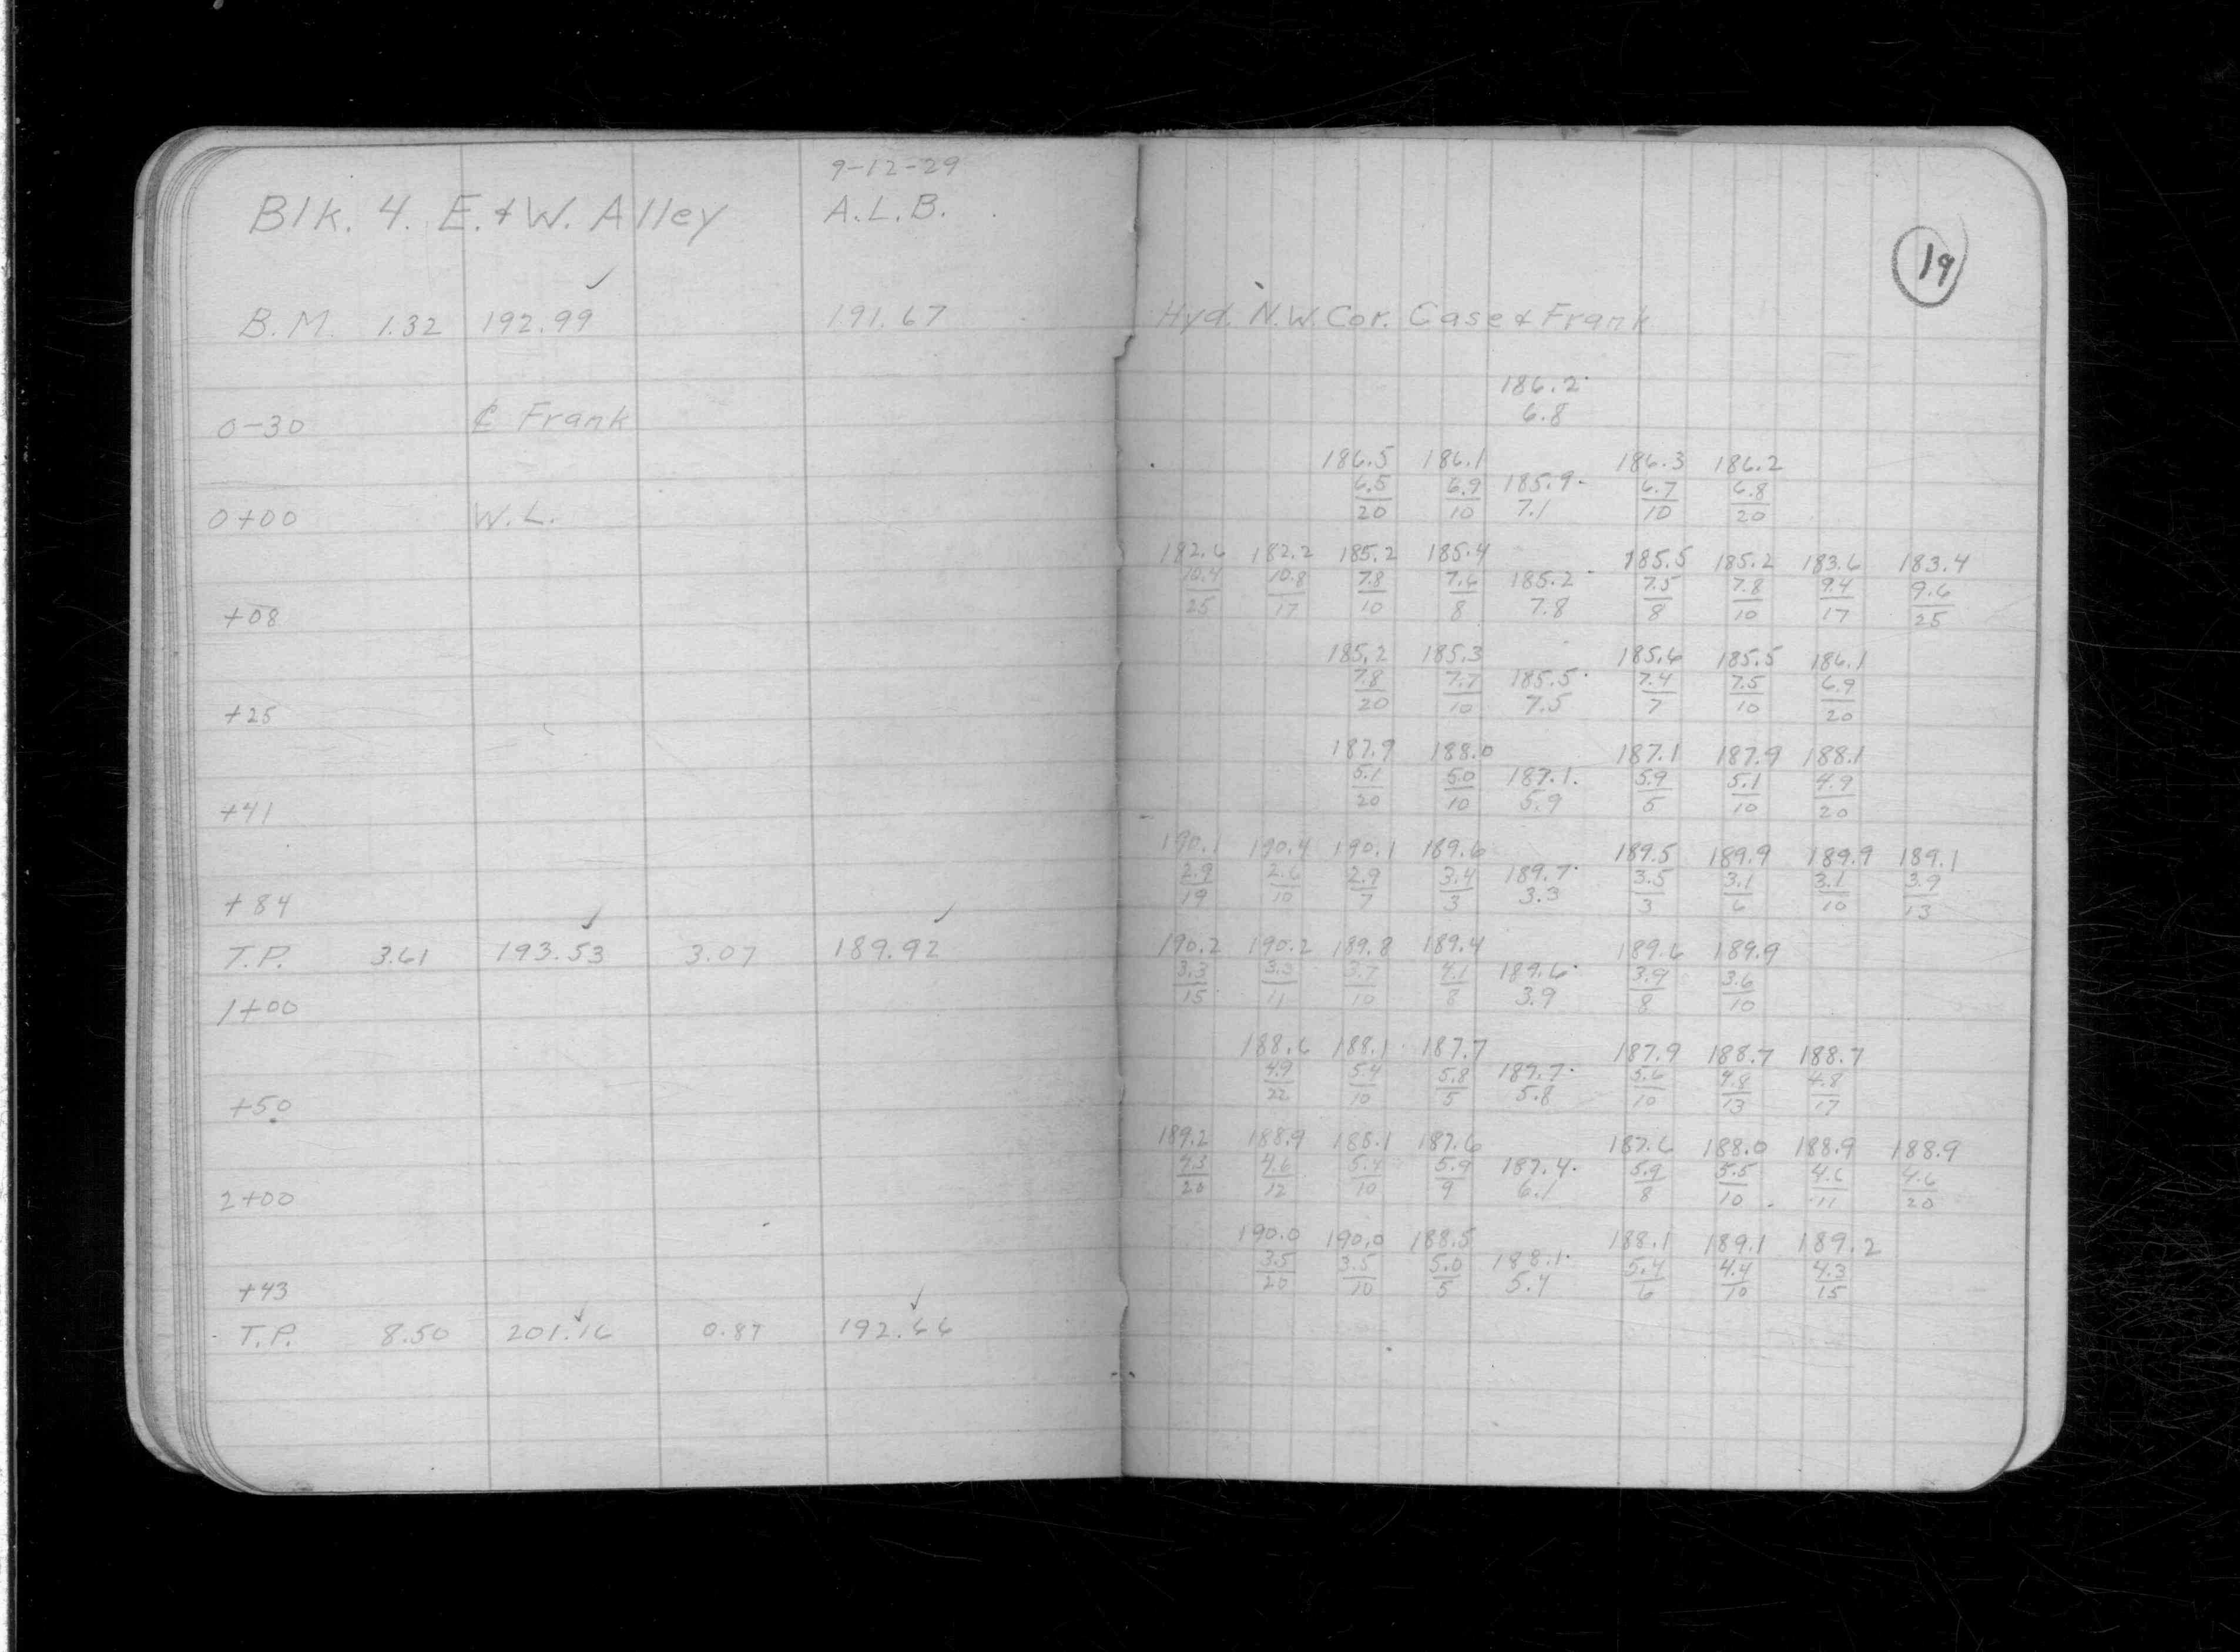 9-12-29
Blk. 4. E. & W. Alley A.L.B.
19
B.M. 1.32 192.99 ✓ 191.67 Hyd. N.W. Cor. Case & Frank
186.2
0-30 ₵ Frank 6.8
186.5 186.1 186.3 186.2
6.5 6.9 185.9 6.7 6.8
0+00 W.L. 20 10 7.1 10 20
182.6 182.2 185.2 185.4 185.5 185.2 183.6 183.4
10.4 10.8 7.8 7.6 185.2 7.5 7.8 9.4 9.6
+08 25 17 10 8 7.8 8 10 17 25
185.2 185.3 185.6 185.5 186.1
7.8 7.7 185.5 7.4 7.5 6.9
+25 20 10 7.5 7 10 20
187.9 188.0 187.1 187.9 188.1
5.1 5.0 187.1 5.9 5.1 4.9
+41 20 10 5.9 5 10 20
190.1 190.4 190.1 189.6 189.5 189.9 189.9 189.1
2.9 2.6 2.9 3.4 189.7 3.5 3.1 3.1 3.9
+84 19 10 7 3 3.3 3 6 10 13
T.P. 3.61 193.53 ✓ 3.07 189.92 ✓ 190.2 190.2 189.8 189.4 189.6 189.9
3.3 3.3 3.7 4.1 189.6 3.9 3.6
1+00 15 11 10 8 3.9 8 10
188.6 188.1 187.7 187.9 188.7 188.7
4.9 5.4 5.8 187.7 5.6 4.8 4.8
+50 22 10 5 5.8 10 13 17
189.2 188.9 188.1 187.6 187.6 188.0 188.9 188.9
4.3 4.6 5.4 5.9 187.4 5.9 5.5 4.6 4.6
2+00 20 12 10 9 6.1 8 10 11 20
190.0 190.0 188.5 188.1 189.1 189.2
3.5 3.5 5.0 188.1 5.4 4.4 4.3
+43 20 10 5 5.4 6 10 15
T.P. 8.50 201.16 ✓ 0.87 192.66 ✓